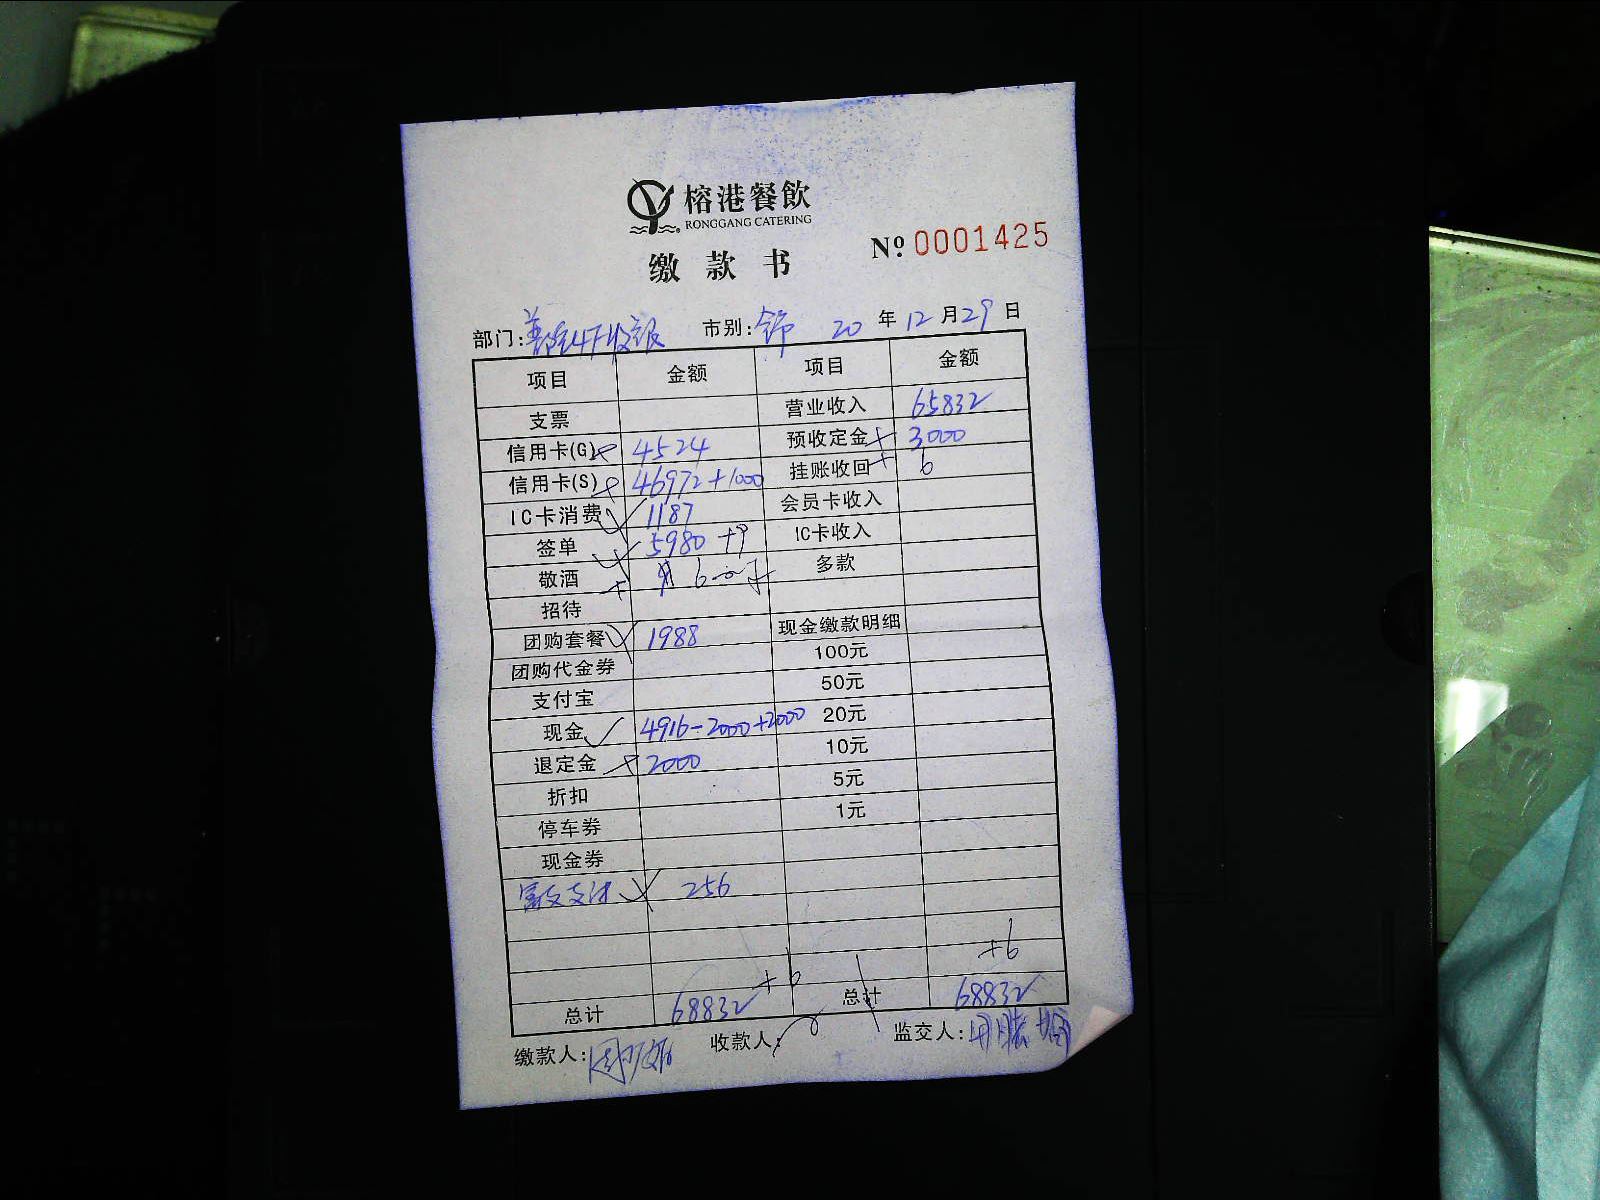 榕港餐飲
RONGGANG CATERING
缴款书 Nº 0001425
部门: 4F收银 市别: 20 年 12 月 29 日
项目 金额 项目 金额
支票 营业收入 65832
信用卡(G) 4524 预收定金 + 3000
信用卡(S) 46972+1000 挂账收回 + 6
IC卡消费 1187 会员卡收入
签单 5980 +9 IC卡收入
敬酒 多款
招待
团购套餐 1988 现金缴款明细
团购代金券 100元
支付宝 50元
现金 4916-2000+2000 20元
退定金 2000 10元
折扣 5元
停车券 1元
现金券
支付 256
+6 +6
总计 68832 总计 68832
缴款人: 收款人: 监交人: